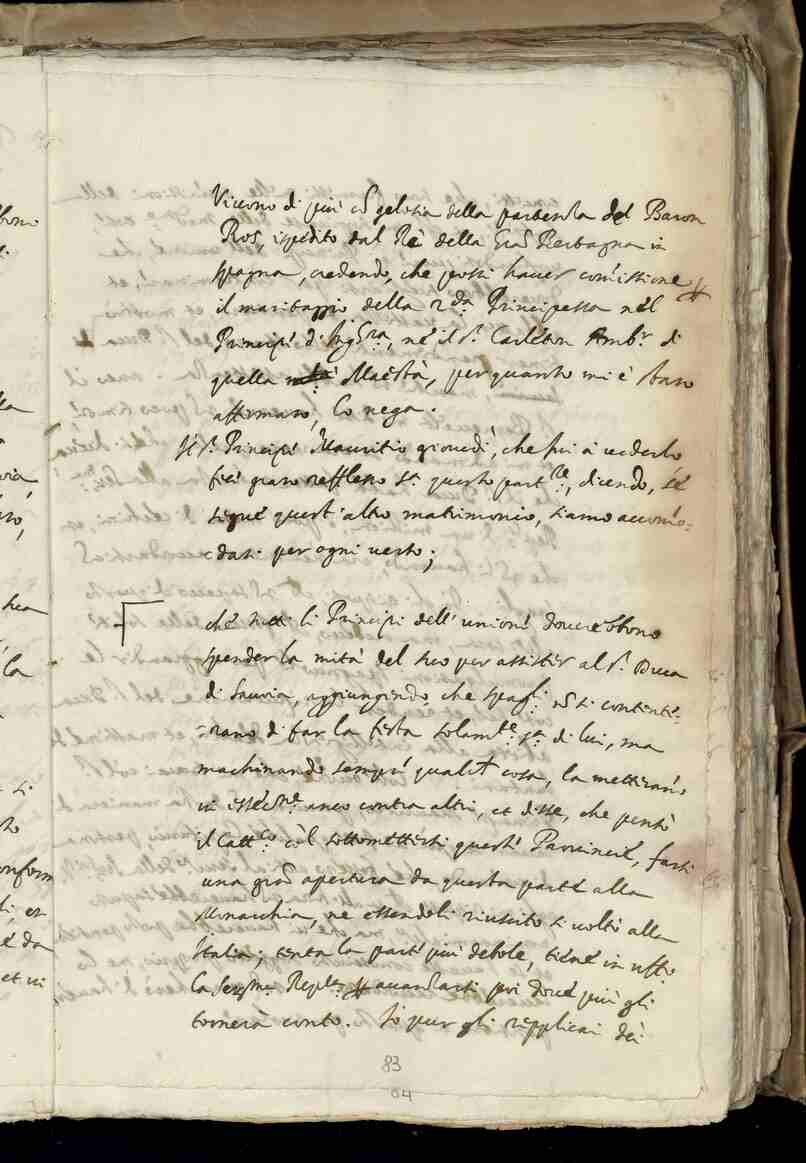 Vivono di più cõ gelosia della partenza del Baron
Ros, ispedito dal Rè della Grã Bertagna in
Spagna, credendo, che possi haver comissione
il maritaggio della 2da Principessa nel
Principe d'Inghra, nè il Sr. Carleton Ambr. di
quella Maestà, per quanto mi è stato
affirmato, lo nega.
Il Sr. Principe Mauritio giovedì, che fui à vederlo
fece gran riflesso sr. questo partre, dicendo, sè
segue quest'altro matrimonio, siamo accomo=
dati per ogni verso;
che tutti li Principi dell'unione doverebbono
spender la mità del suo per assister al Sr. Duca
di Savoia, aggiungendo, che Spagli. nõ si contente=
=rano di far la festa solamte. pr. di lui, ma
machinando sempre qualche cosa, la metterano
in essecne. anco contra altri, et disse, che pensò
il Cattco. cõ'l sottometersi queste Provincie, farsi
una grã apertura da questa parte alla
Monarchia, ne essendoli riuscito si voltò alla
Italia; tenta la parte più debole, tiene in uffo.
la Serma. Repca. avanzarsi poi dove più gli
tornerà conto. Io pur gli repplicai dei
83
84